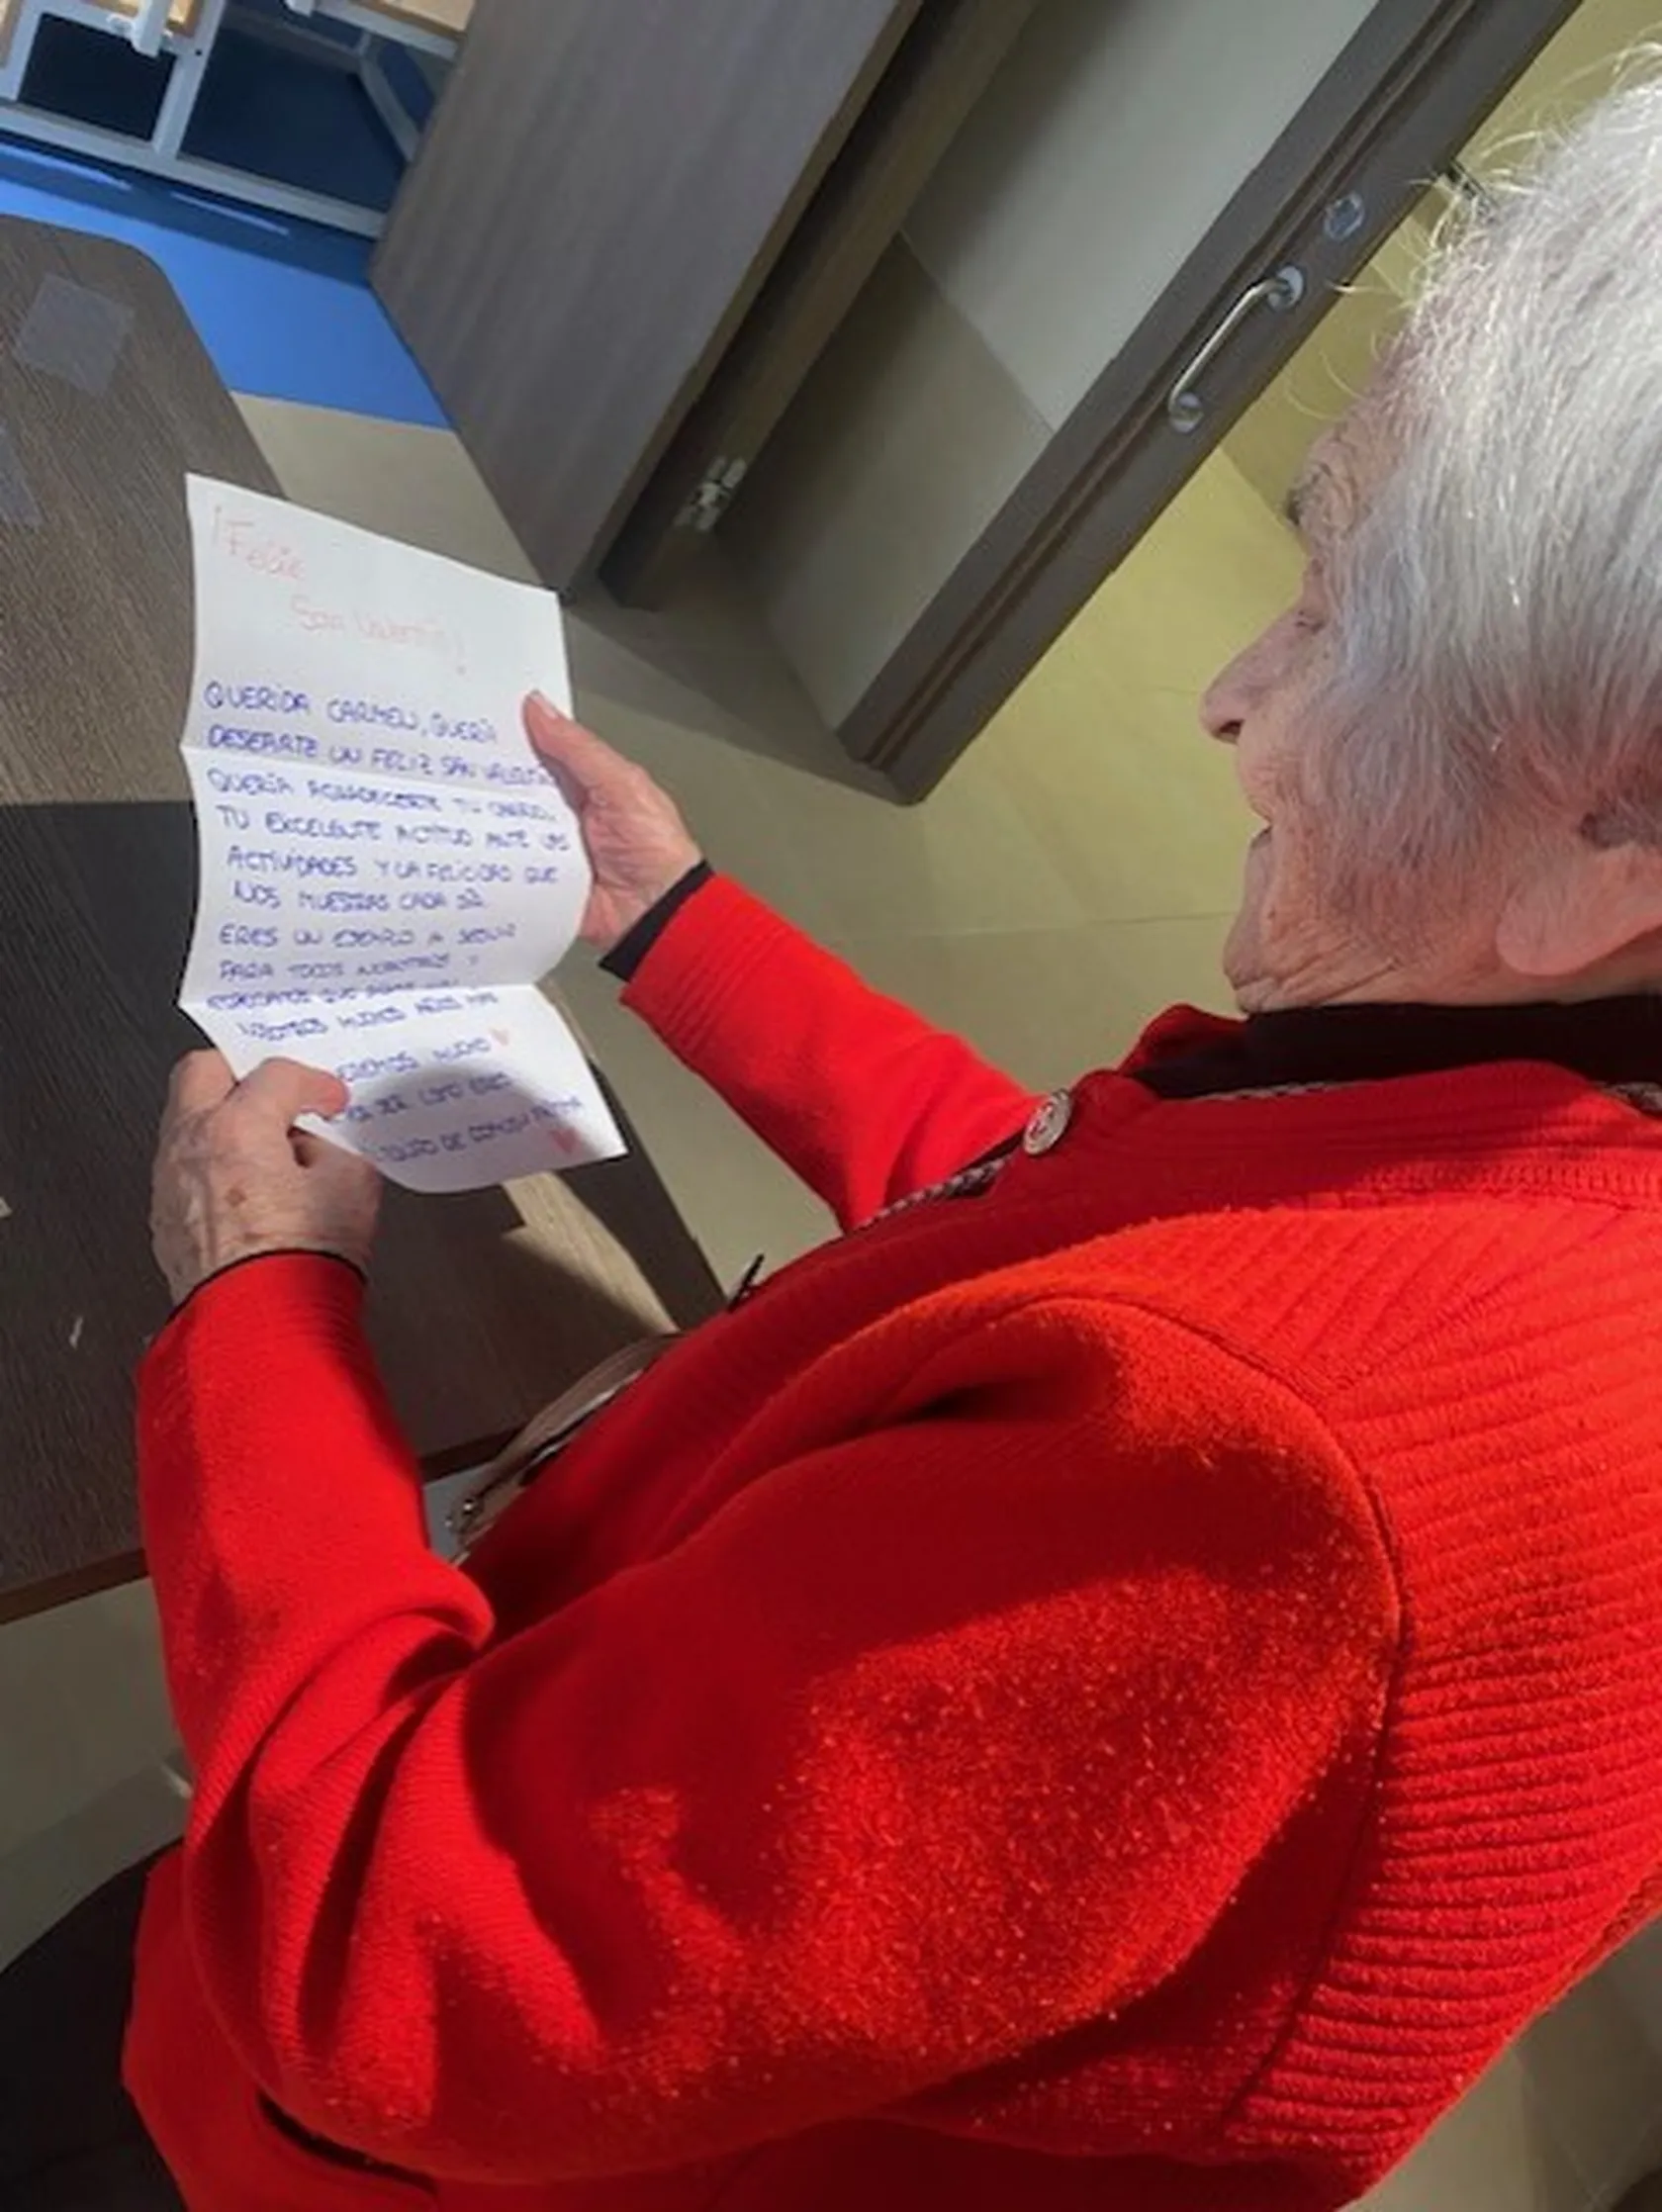 ¡Feliz
San Valentín!
QUERIDA CARMEN, QUERÍA
DESEARTE UN FELIZ SAN VALENTÍN
QUERÍA AGRADECERTE TU CARIÑO,
TU EXCELENTE ACTITUD ANTE LAS
ACTIVIDADES Y LA FELICIDAD QUE
NOS MUESTRAS CADA DÍA.
ERES UN EJEMPLO A SEGUIR
PARA TODOS NOSOTROS Y
ESPERAMOS QUE
NOSOTROS MUCHOS AÑOS MÁS
MUCHO
POR SER COMO ERES
EQUIPO DE